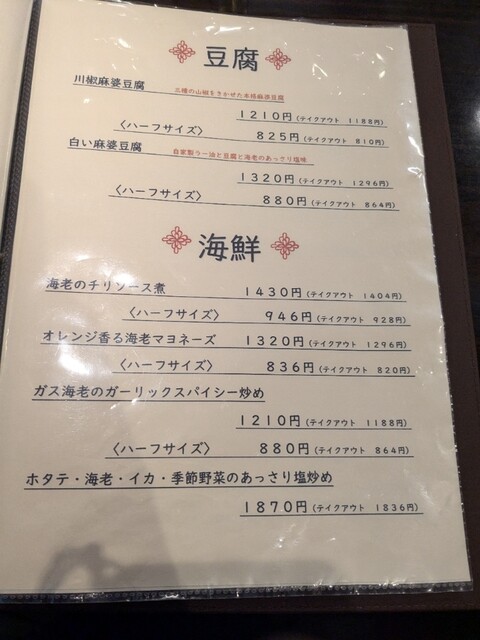 豆腐
川椒麻婆豆腐 三種の山椒をきかせた本格麻婆豆腐
1210円(テイクアウト 1188円)
〈ハーフサイズ〉 825円(テイクアウト 810円)
白い麻婆豆腐 自家製ラー油と豆腐と海老のあっさり塩味
1320円(テイクアウト 1296円)
〈ハーフサイズ〉 880円(テイクアウト 864円)
海鮮
海老のチリソース煮 1430円(テイクアウト 1404円)
〈ハーフサイズ〉 946円(テイクアウト 928円)
オレンジ香る海老マヨネーズ 1320円(テイクアウト 1296円)
〈ハーフサイズ〉 836円(テイクアウト 820円)
ガス海老のガーリックスパイシー炒め
1210円(テイクアウト 1188円)
〈ハーフサイズ〉 880円(テイクアウト 864円)
ホタテ・海老・イカ・季節野菜のあっさり塩炒め
1870円(テイクアウト 1836円)